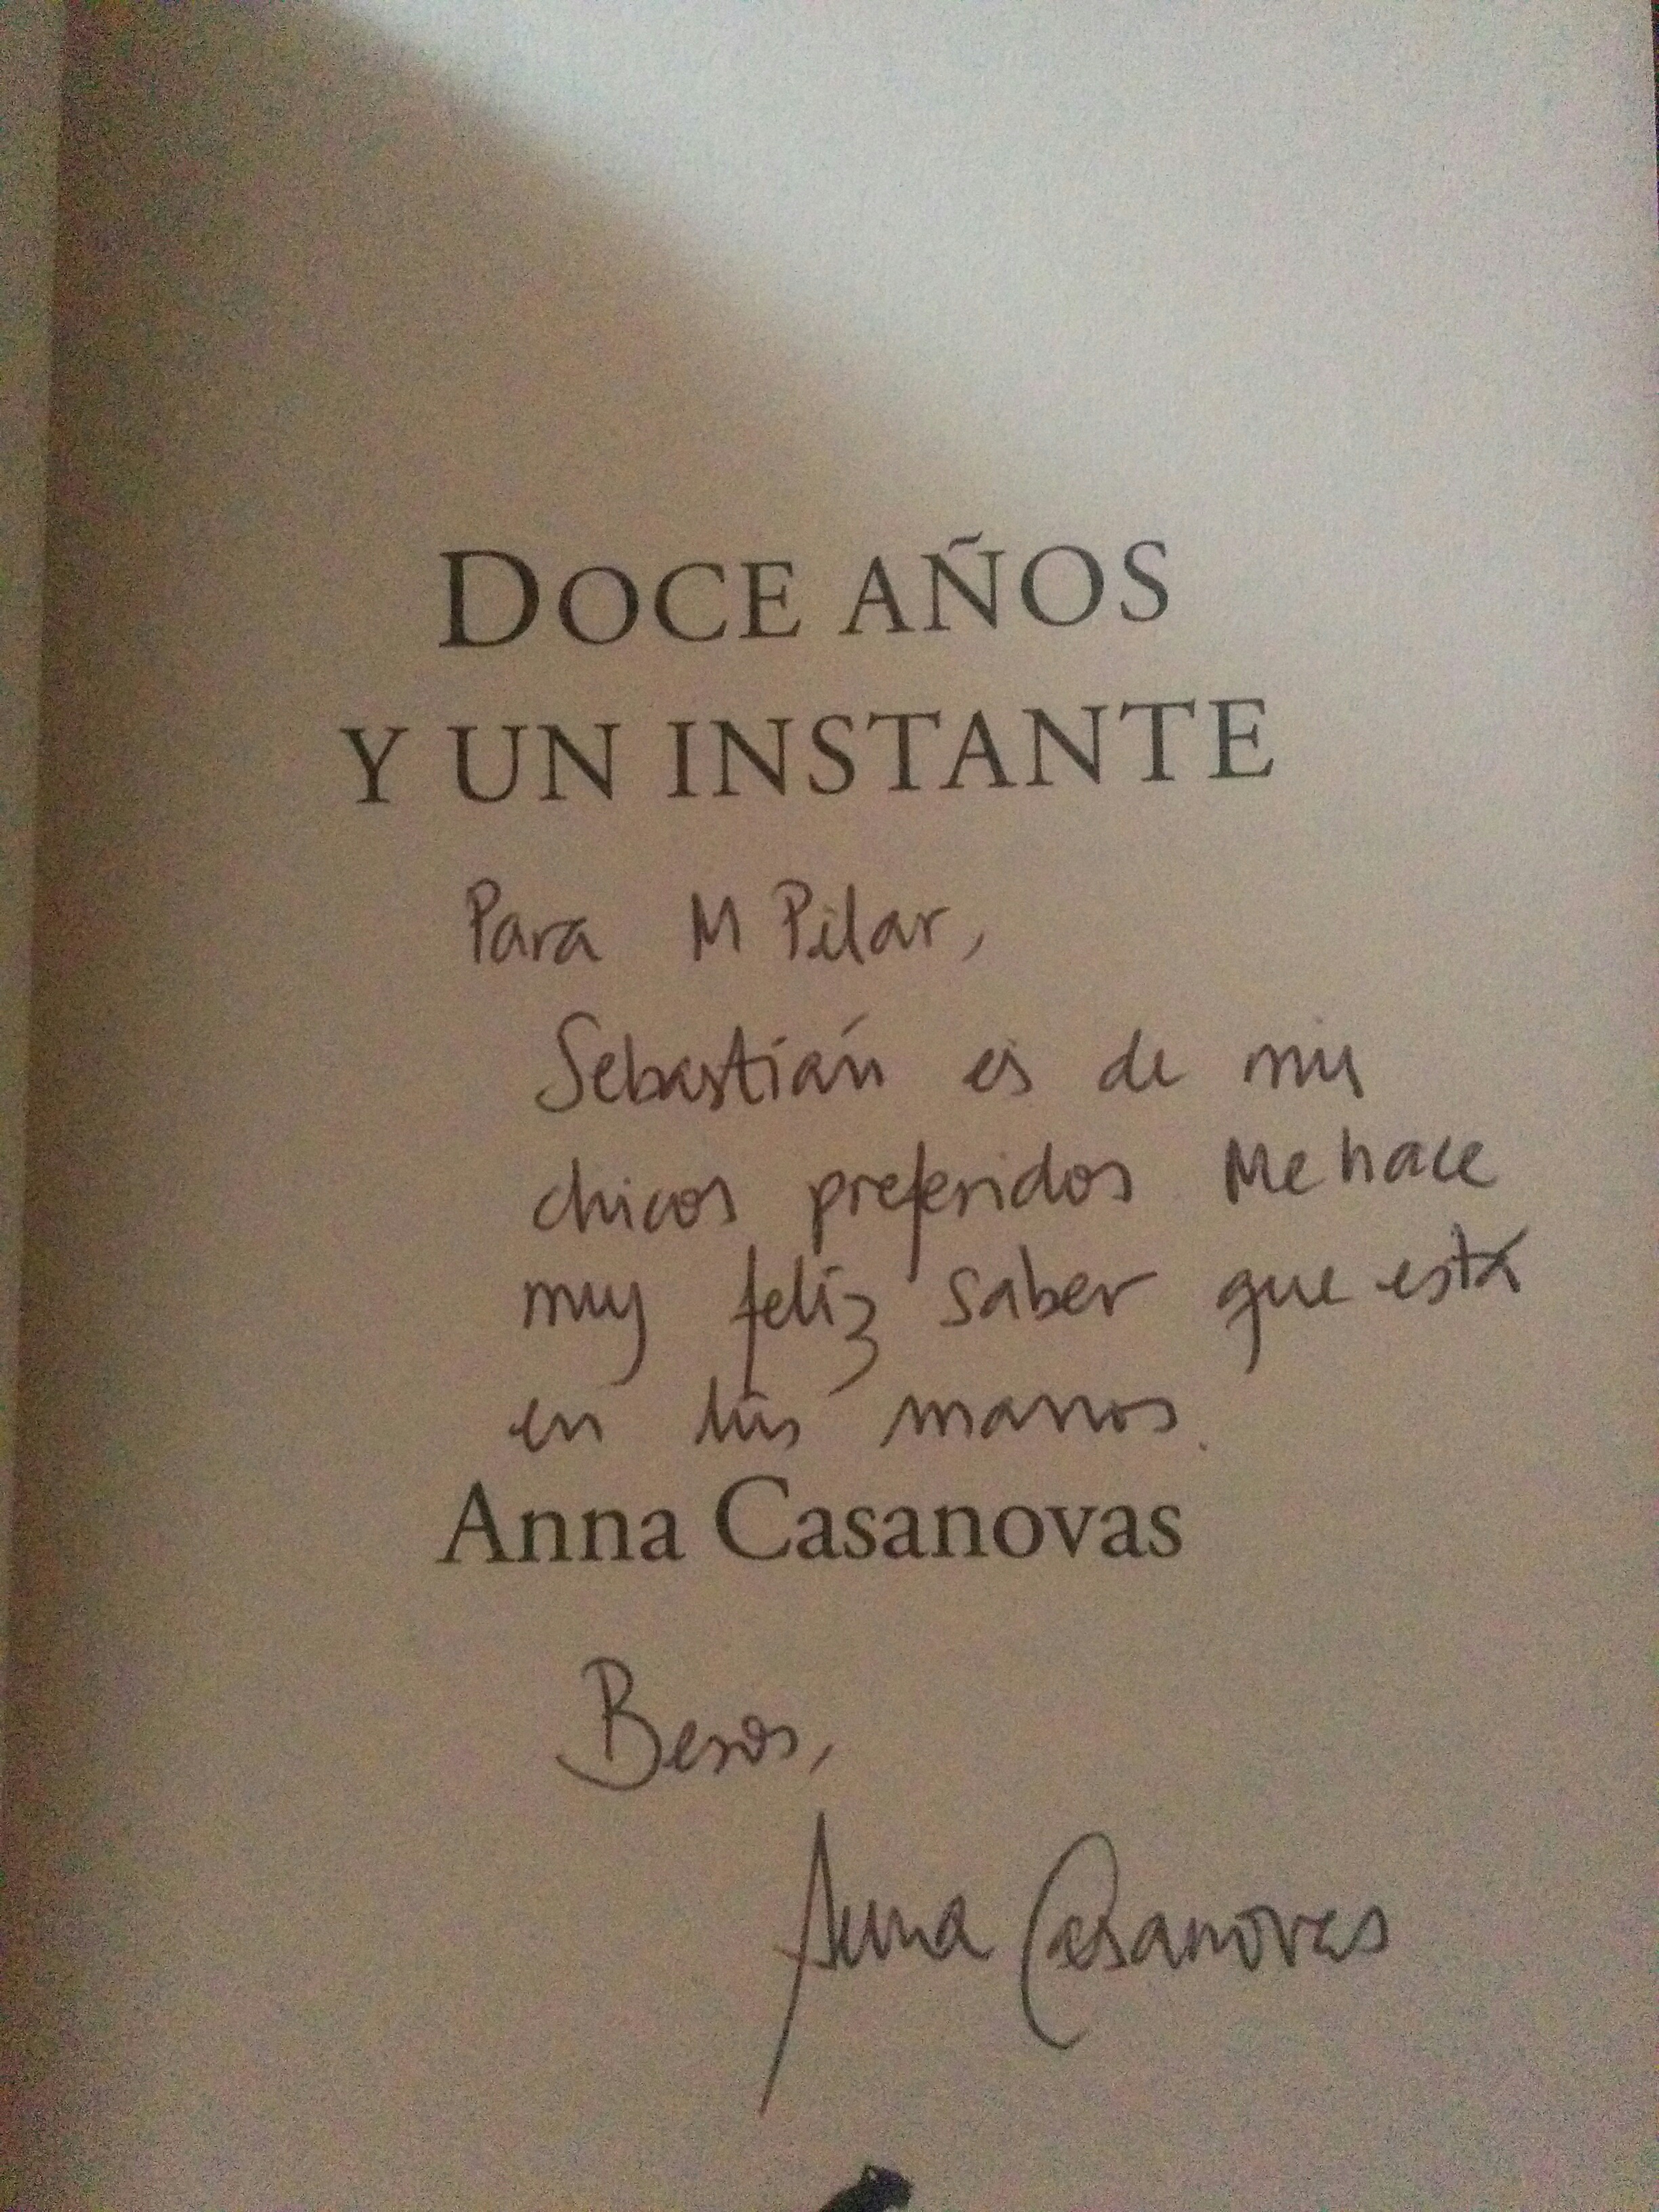 DOCE AÑOS
Y UN INSTANTE
Para M Pilar,
Sebastián es de mis
chicos preferidos. Me hace
muy feliz saber que está
en tus manos.
Anna Casanovas
Besos,
Anna Casanovas